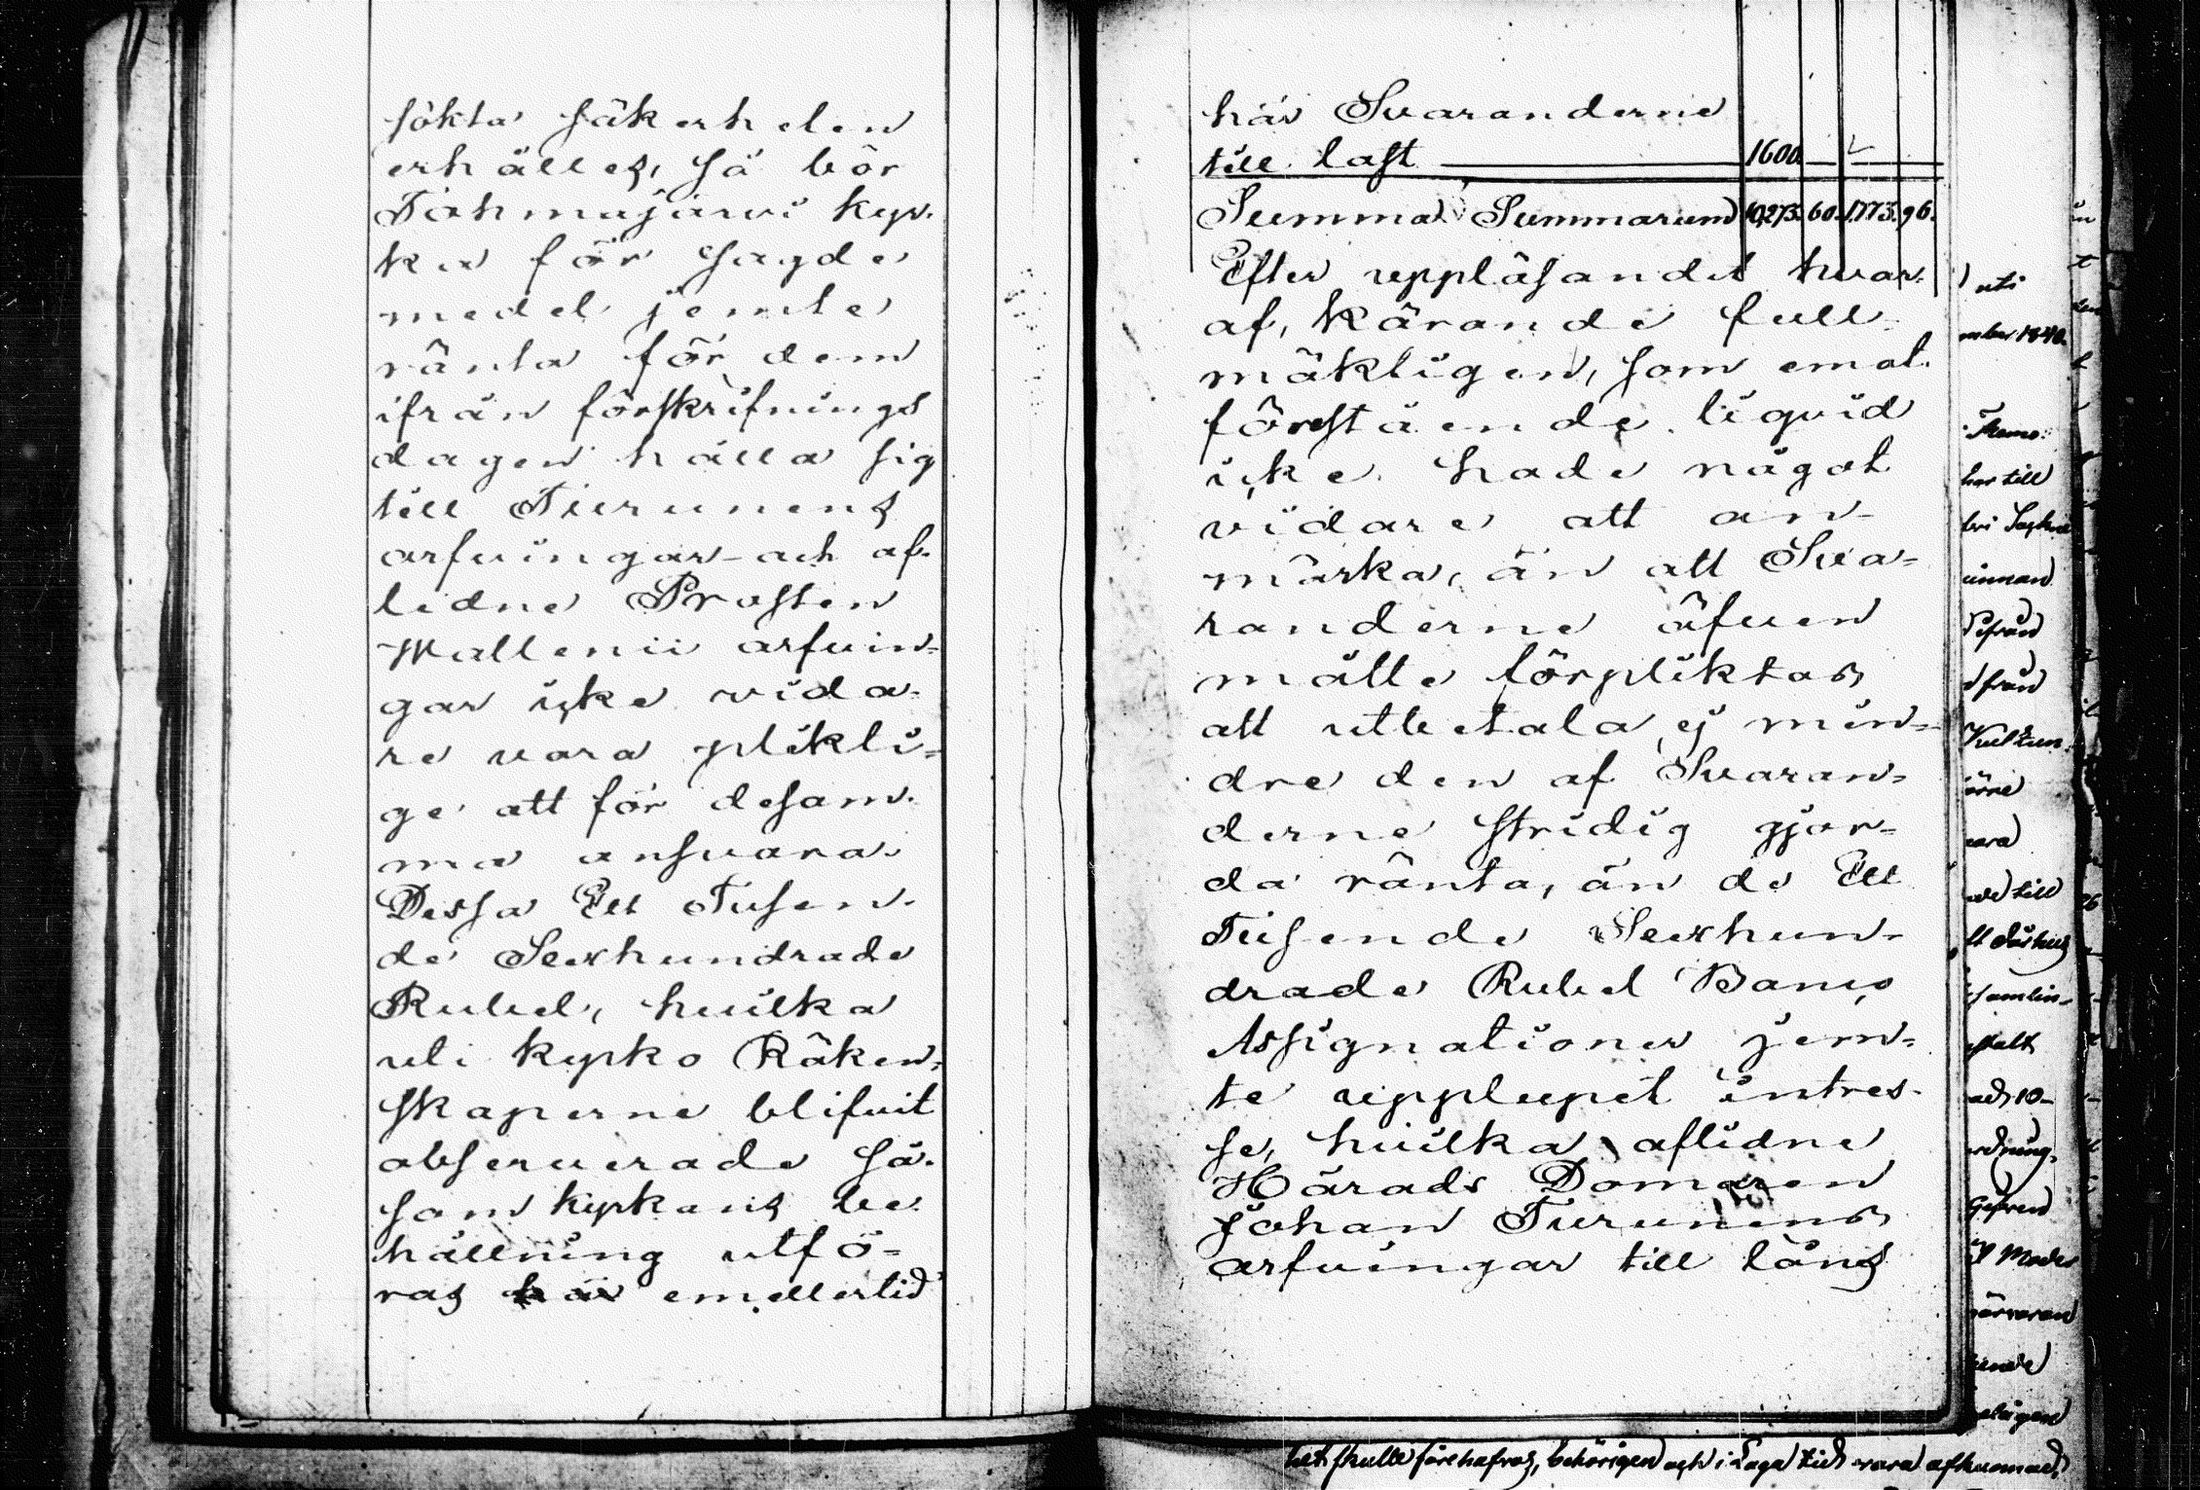 sökta säkerheten
erhålles, så bör
Tohmajärvi kyr-
ka för sagde
medel jemte
ränta för dem
ifrån förskrifnings
dagen hålla sig
till Turunens
arfvingar och af-
lidne Prosten
Wallenii arfvin-
gar icke vida-
re vara pligti-
ge att för desam-
ma ansvara.
Dessa Ett Tusen-
de Sexhundrade
Rubel, hvilka
uti kyrko Räken-
skaperne blifvit
observerade så-
som kyrkans be-
hållning utfö-
ras här emellertid
här Svaranderne
till last 1600. — —
Summa Summarum 10,273. 60. 1,773. 96.
Efter uppläsandet hvar-
af, Kärande full-
mäktigen, som emot
förestående liqvid
icke hade något
vidare att an-
märka, än att Sva-
randerne äfven
måtte förpliktas
att utbetala ej min-
dre den af Svaran-
derne stridig gjor-
da ränta, än de Ett
Tusende Sexhun-
drade Rubel Banco
Assignationer jem-
te upplupet intres-
se, hvilka aflidne
Härads Domaren
Johan Turunens
arfvingar till låns
uti
1840.
har till
innan
ifrån
från
vara
till
10-
het skulle förehafvas, behörigen och i Laga tid vara afkunnad,